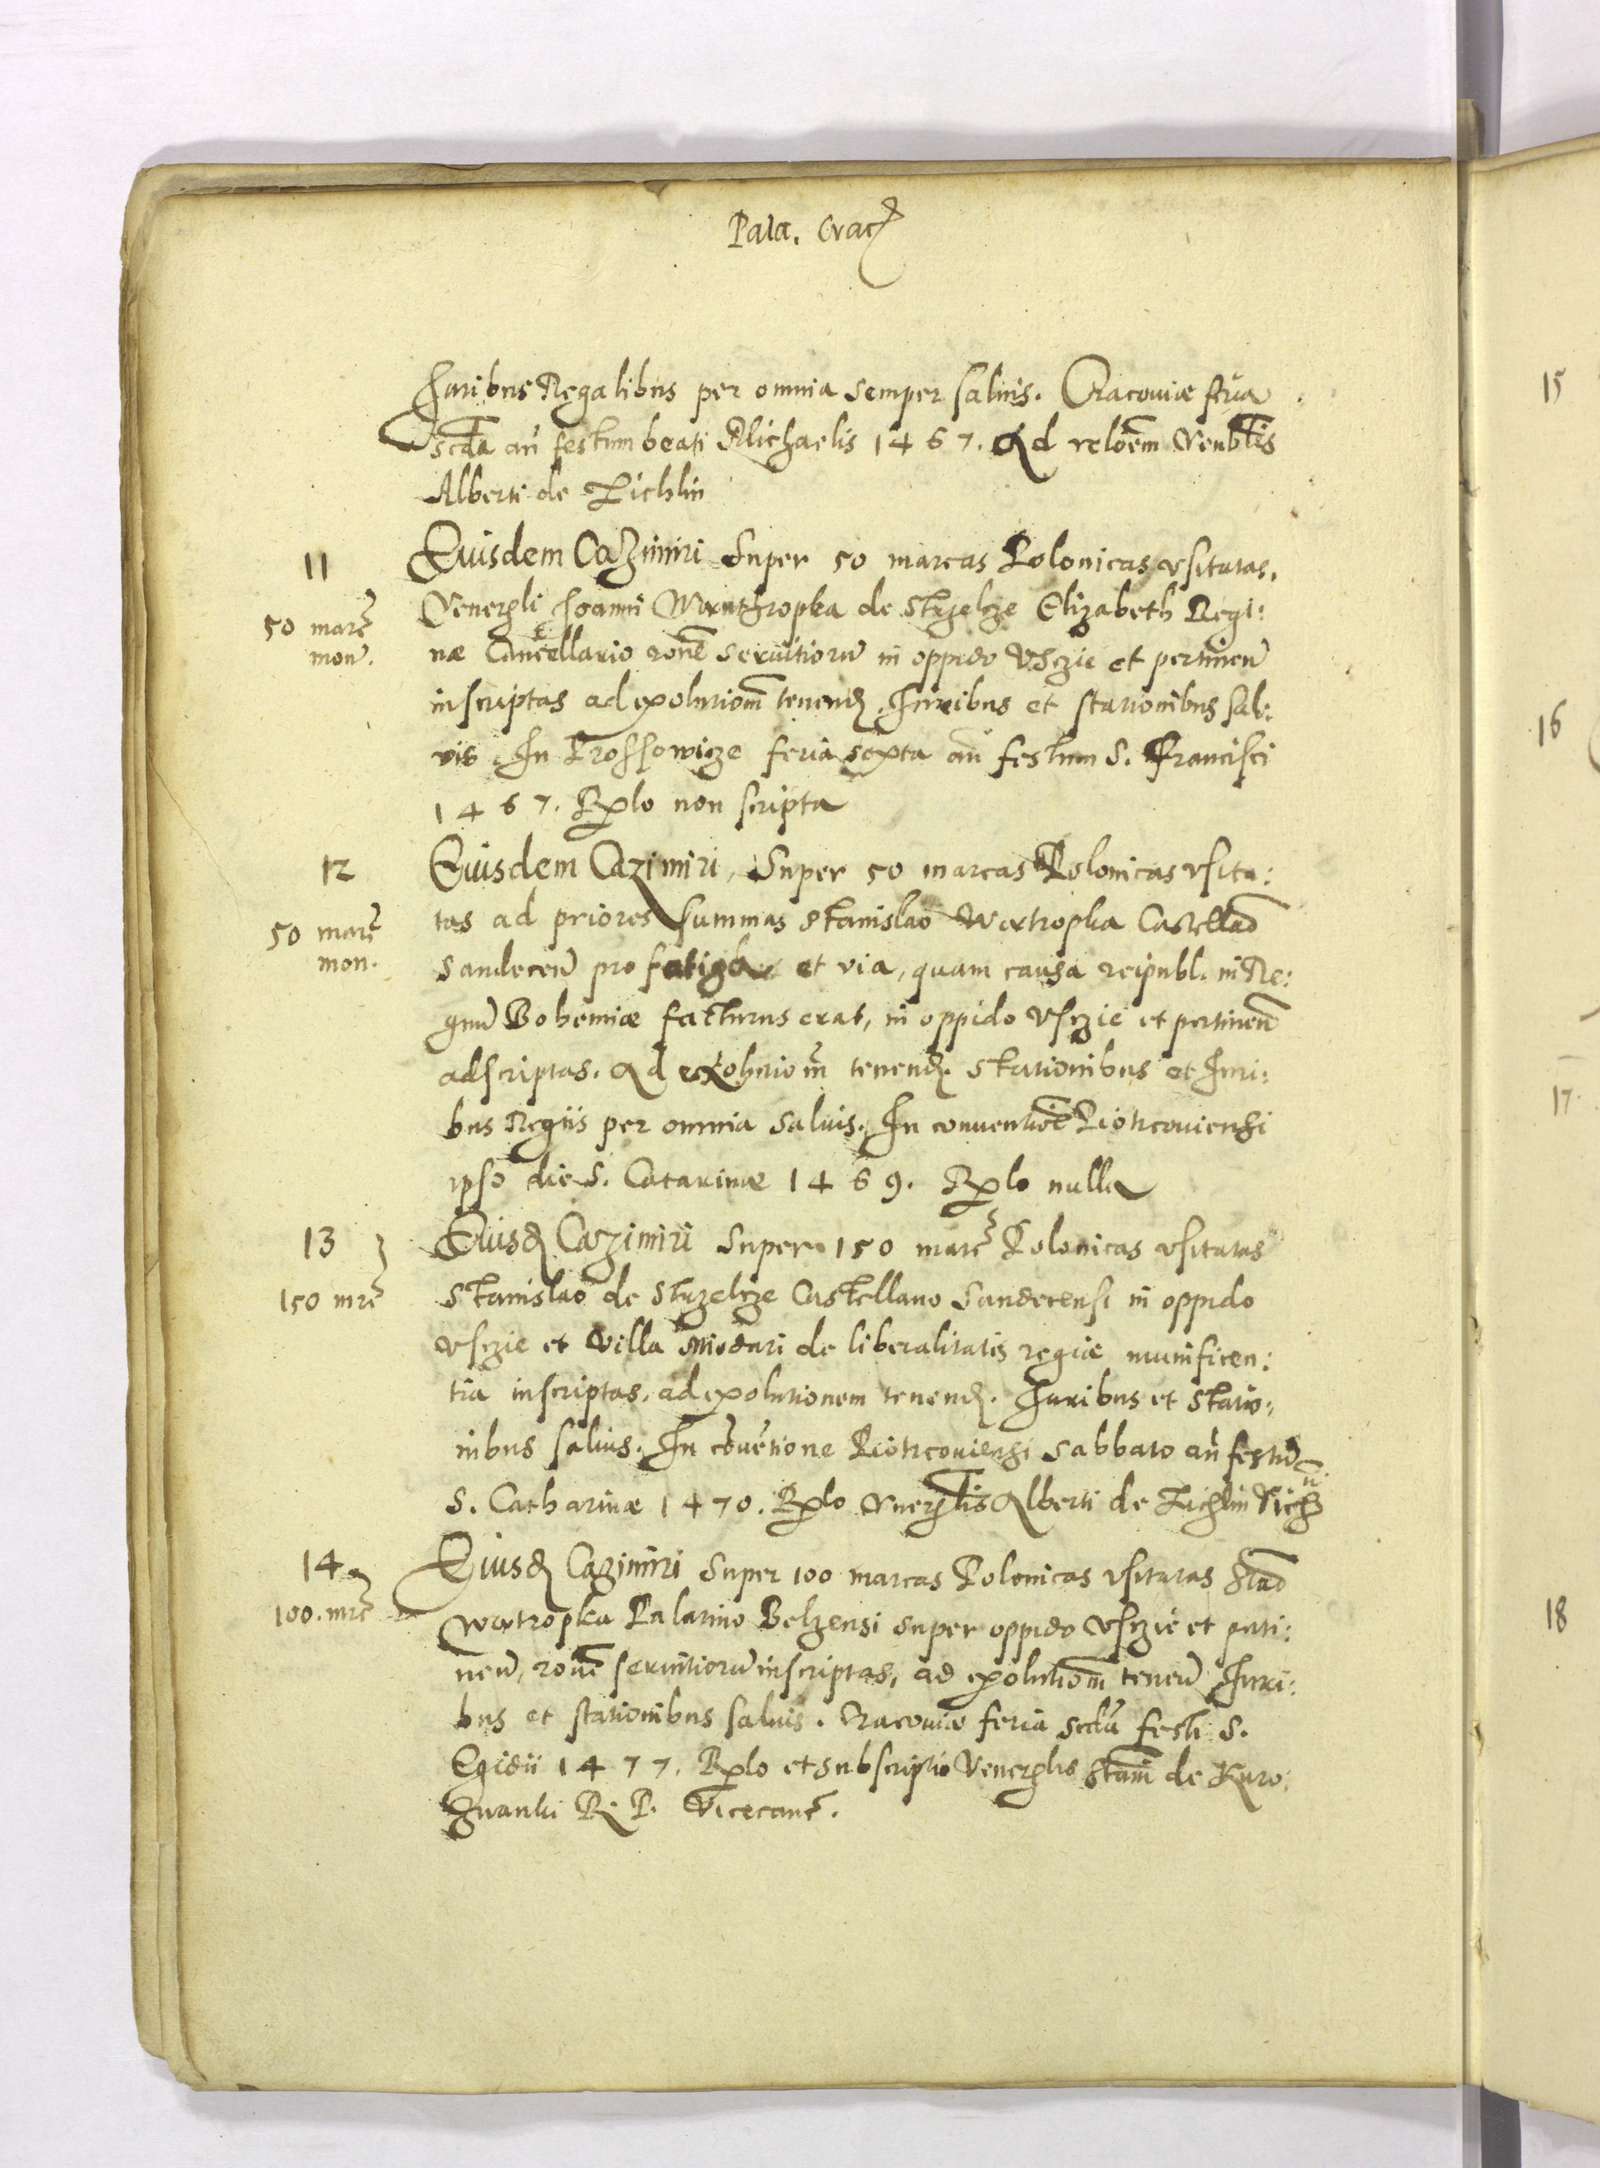 Pala. Crac
Iuribus Regalibus per omnia semper saluis. Cracouiæ feria
scda an festum beati Michaelis 1467. Ad reloem Venblis
Alberti de Zichlin
11
Eiusdem Cazimiri Super 50 marcas Polonicas vsitatas,
50 marc
mon.
Venerabli Joanni Wantropka de Strzelcze Elizabeth Regi:
næ Cancellario rone seruitioru in oppido Vsczie et pertinen
inscriptas ad exolutiom tenend. Iuribus et stationibus sal:
vis. In Prossowicze feria sexta an festum S. Francisci
1467. Rlo non scripta
12
Eiusdem Cazimiri, Super 50 marcas Polonicas vsita:
50 marc
mon.
tas ad priores summas Stanislao Wantropka Castellano
Sandecen pro fatiga et via, quam causa reipubl. in Re:
gnu Bohemiæ facturus erat, in oppido Vsczie et pertinen
adscriptas. Ad exolutiom tenend. Stationibus et Iuri:
bus Regiis per omnia saluis. In conuentioe Piotrcouiensi
ipso die S. Catarinæ 1469. Rlo nulla
13
Eiusd Cazimiri Super 150 marc Polonicas vsitatas
150 mrc
Stanislao de Strzelcze Castellano Sandecensi in oppido
vsczie et villa de liberalitatis regiæ munificen:
tia inscriptas, ad exolutionem tenend. Iuribus et statio:
nibus saluis. In couetione Piotrcouiensi Sabbato an festu
S. Catharinæ 1470. Rlo Vnerblis Alberti de Zichlin Vich
14
Eiusd Cazimiri Super 100 marcas Polonicas vsitatas Stao
100. mrc
Wantropka Palatino Belzensi super oppido Vsczie et perti:
nen, rone seruitioru inscriptas, ad exolutiom tenen Iuri:
bus et stationibus saluis. Cracouiæ feria scda festi S.
Egidii 1477. Rlo et subscriptio Venerblis Stani de Kuro:
zwanki R. P. Vicecanc.
15
16
17.
18